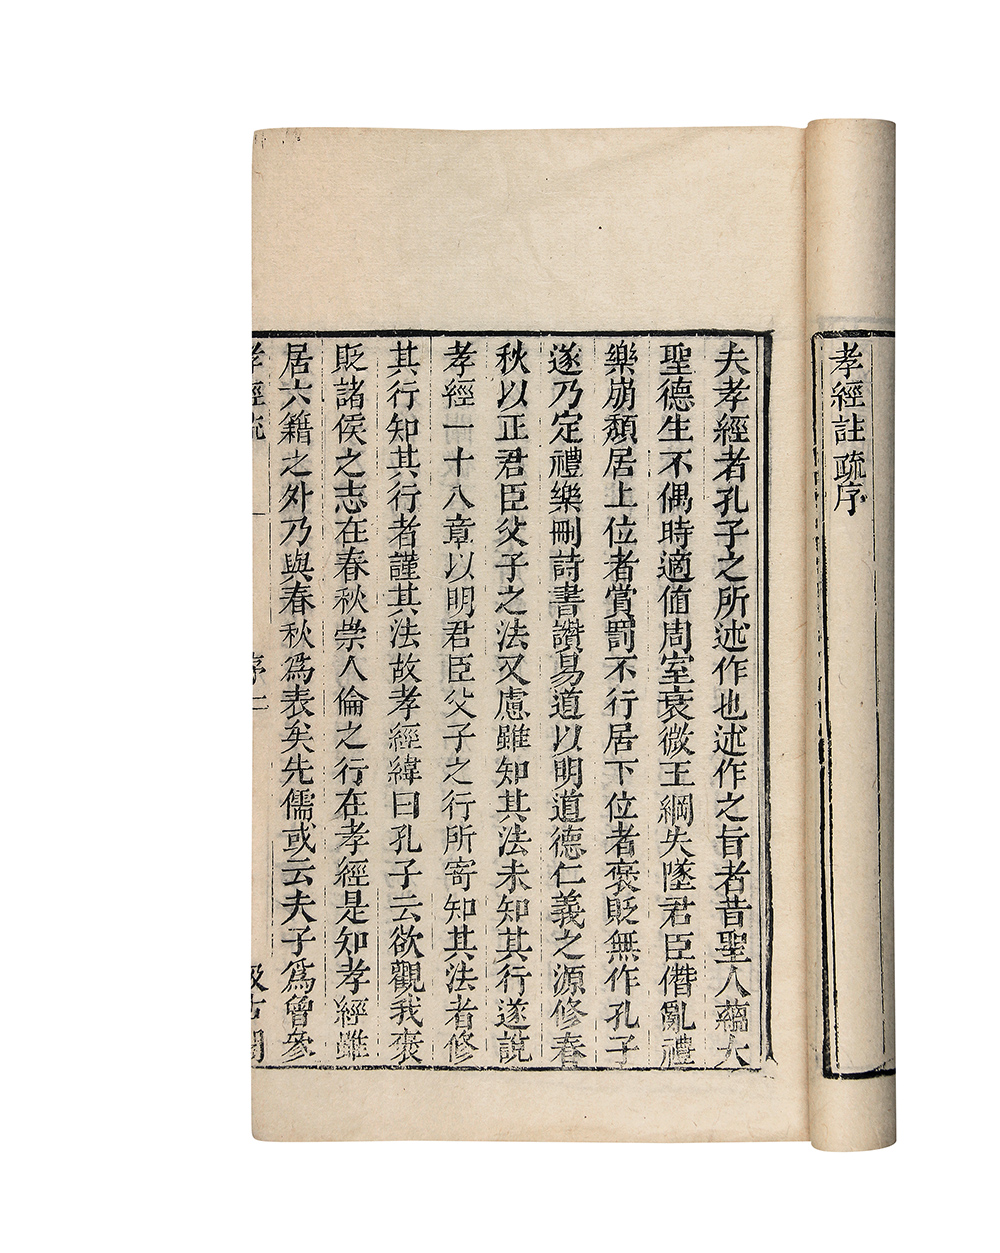 孝經註疏序
夫孝經者孔子之所述作也述作之旨者昔聖人蘊大
聖德生不偶時適值周室衰微王綱失墜君臣僭亂禮
樂崩頹居上位者賞罰不行居下位者褒貶無作孔子
遂乃定禮樂刪詩書讚易道以明道德仁義之源修春
秋以正君臣父子之法又慮雖知其法未知其行遂說
孝經一十八章以明君臣父子之行所寄知其法者修
其行知其行者謹其法故孝經緯曰孔子云欲觀我褒
貶諸侯之志在春秋崇人倫之行在孝經是知孝經雖
居六籍之外乃與春秋為表矣先儒或云夫子為曾參
孝經疏 序一 汲古閣